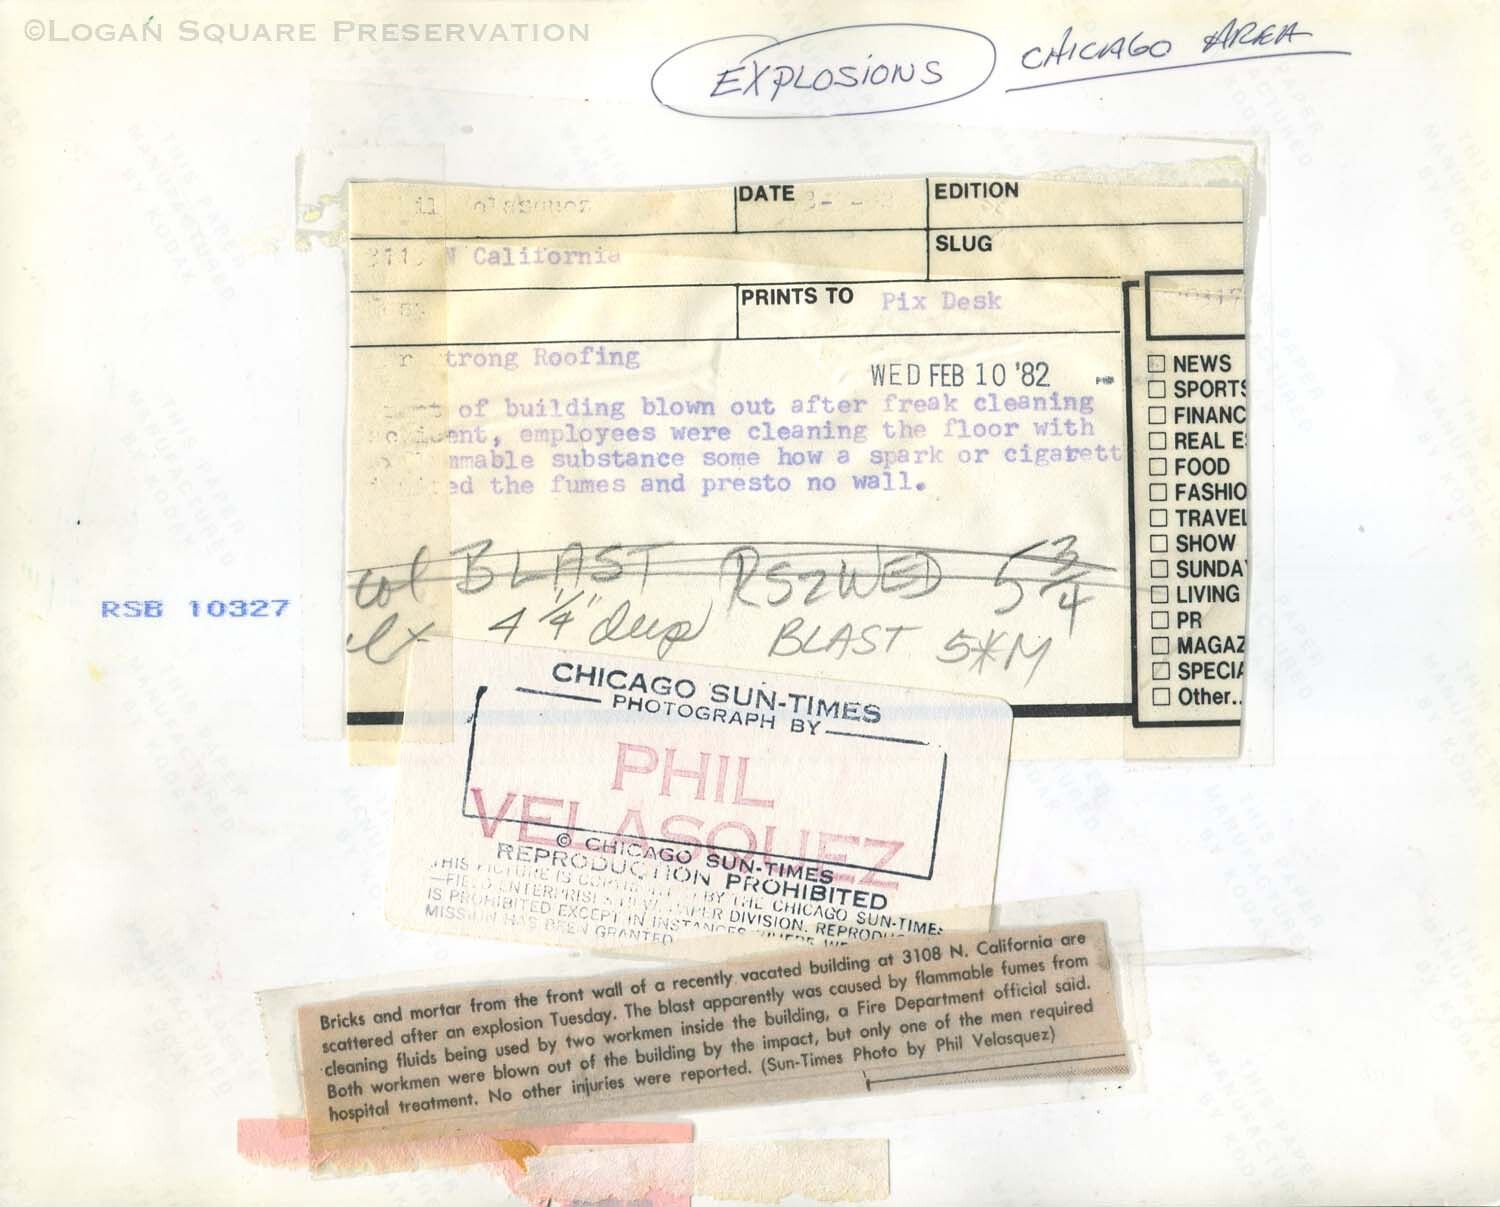 ©LOGAN SQUARE PRESERVATION
EXPLOSIONS CHICAGO AREA
DATE EDITION
N California SLUG
PRINTS TO Pix Desk
trong Roofing
WED FEB 10 '82
of building blown out after freak cleaning
ent, employees were cleaning the floor with
mmable substance some how a spark or cigarett
ed the fumes and presto no wall.
NEWS
SPORTS
FINANC
REAL E
FOOD
FASHIO
TRAVEL
SHOW
SUNDA
LIVING
PR
MAGAZ
SPECIA
Other..
BLAST RS2WED 5 3/4
4 1/4" deep BLAST 5*M
RSB 10327
CHICAGO SUN-TIMES
PHOTOGRAPH BY
PHIL
VELASQUEZ
© CHICAGO SUN-TIMES
REPRODUCTION PROHIBITED
THIS PICTURE IS BY THE CHICAGO SUN-TIMES
DIVISION.
IS PROHIBITED EXCEPT IN INSTANCES WHERE
MISSION HAS BEEN GRANTED
Bricks and mortar from the front wall of a recently vacated building at 3108 N. California are
scattered after an explosion Tuesday. The blast apparently was caused by flammable fumes from
cleaning fluids being used by two workmen inside the building, a Fire Department official said.
Both workmen were blown out of the building by the impact, but only one of the men required
hospital treatment. No other injuries were reported. (Sun-Times Photo by Phil Velasquez)